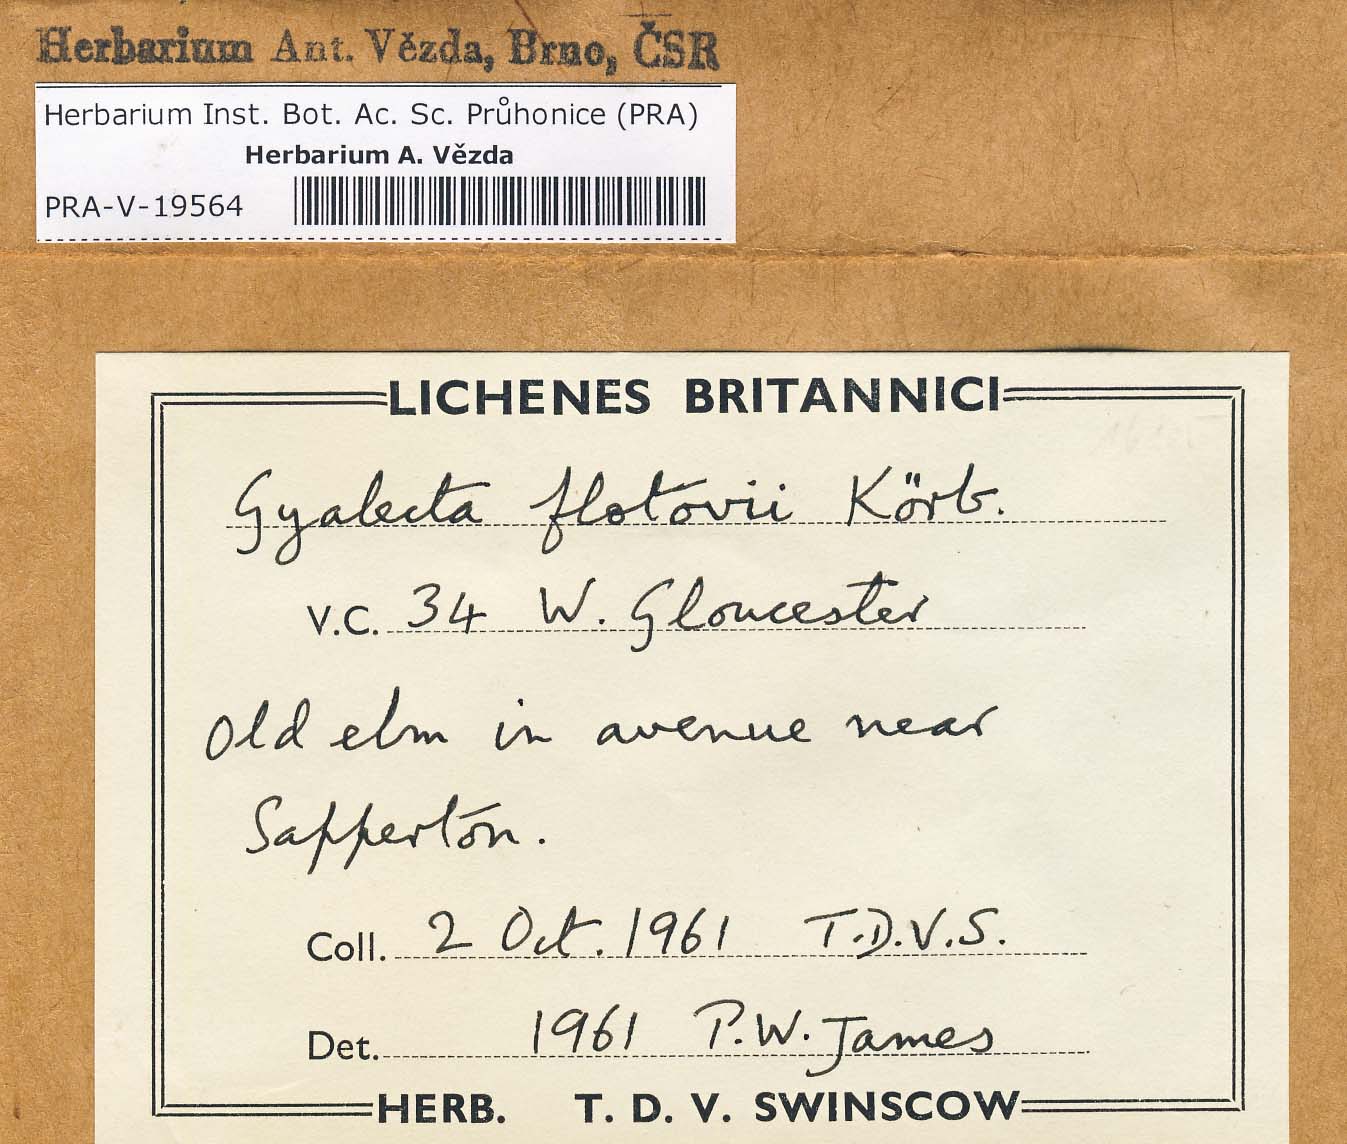 Herbarium Ant. Vězda, Brno, ČSR
Herbarium Inst. Bot. Ac. Sc. Průhonice (PRA)
Herbarium A. Vězda
PRA-V-19564
LICHENES BRITANNICI
Gyalecta flotovii Körb.
V.C. 34 W. Gloucester
Old elm in avenue near
Sapperton.
Coll. 2 Oct. 1961 T.D.V.S.
Det. 1961 P.W. James
HERB. T. D. V. SWINSCOW